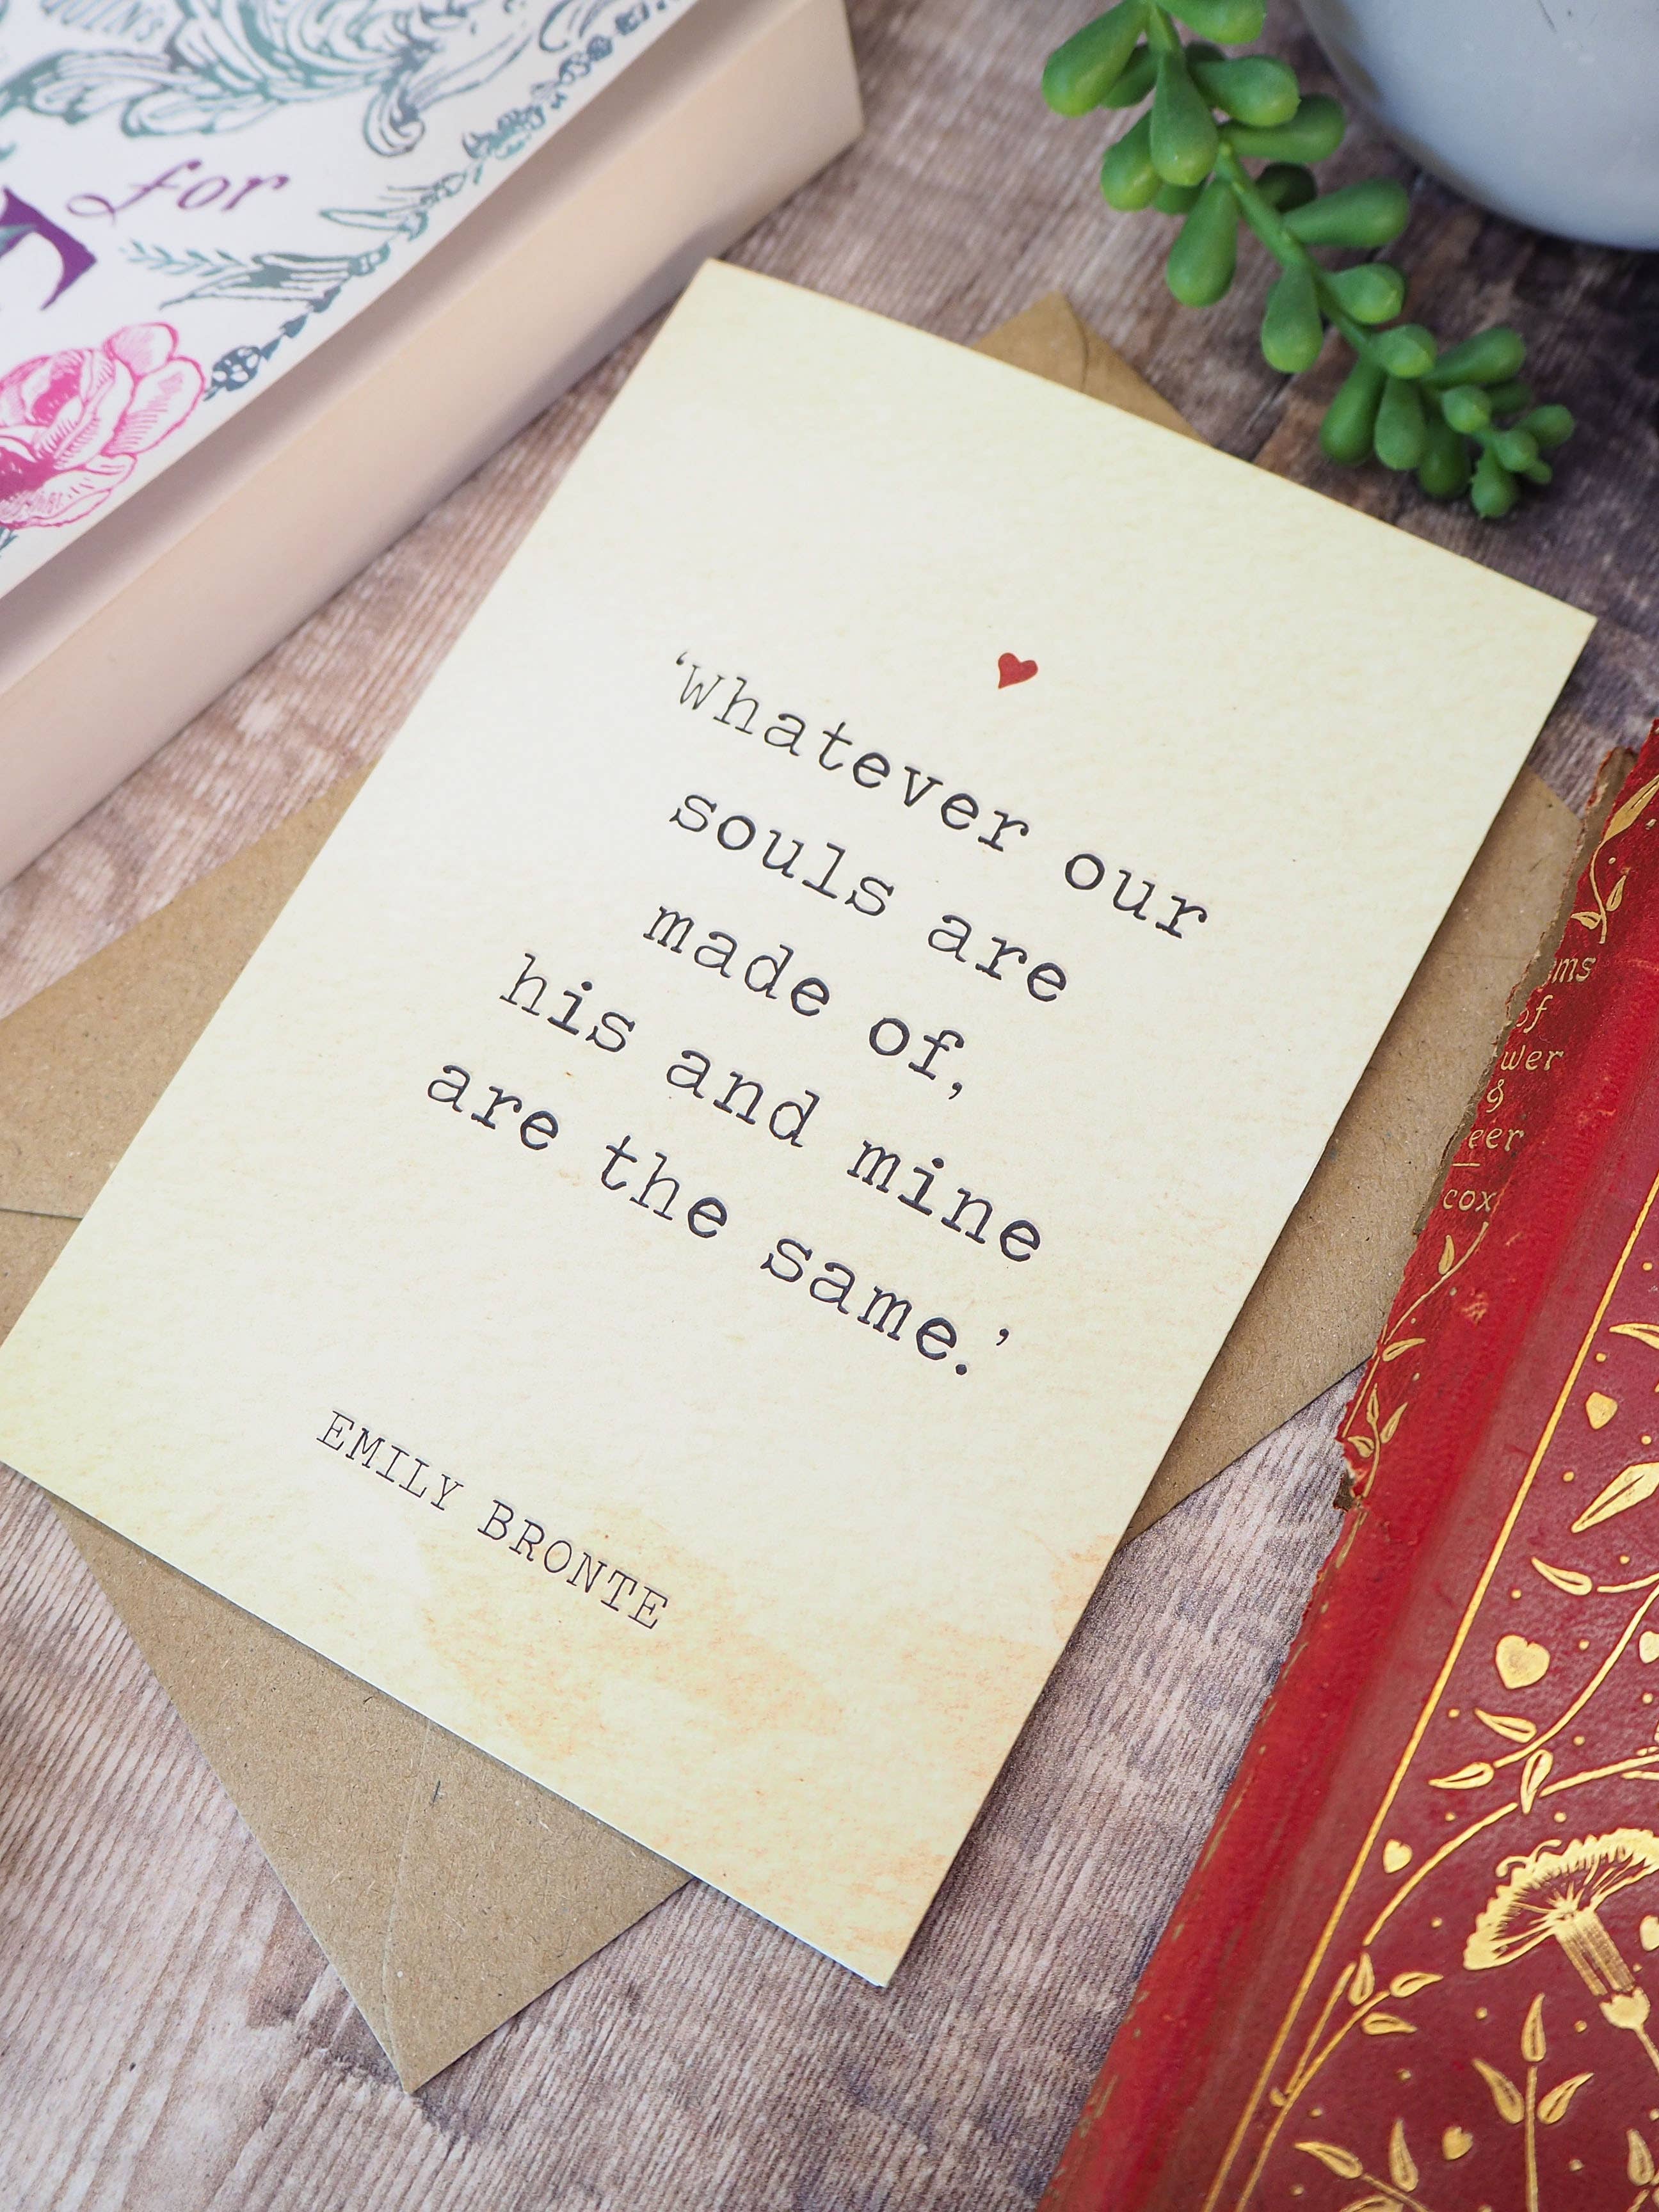 for
‘Whatever our
souls are
made of,
his and mine
are the same.’
EMILY BRONTE
of
&
cox